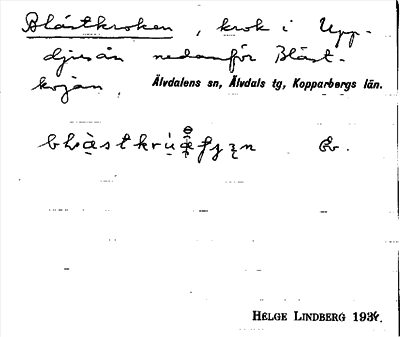 Blåstkroken, krok i Upp-
djusån nedanför Blåst-
kojan.
Älvdalens sn, Älvdals tg, Kopparbergs län.
HELGE LINDBERG 193